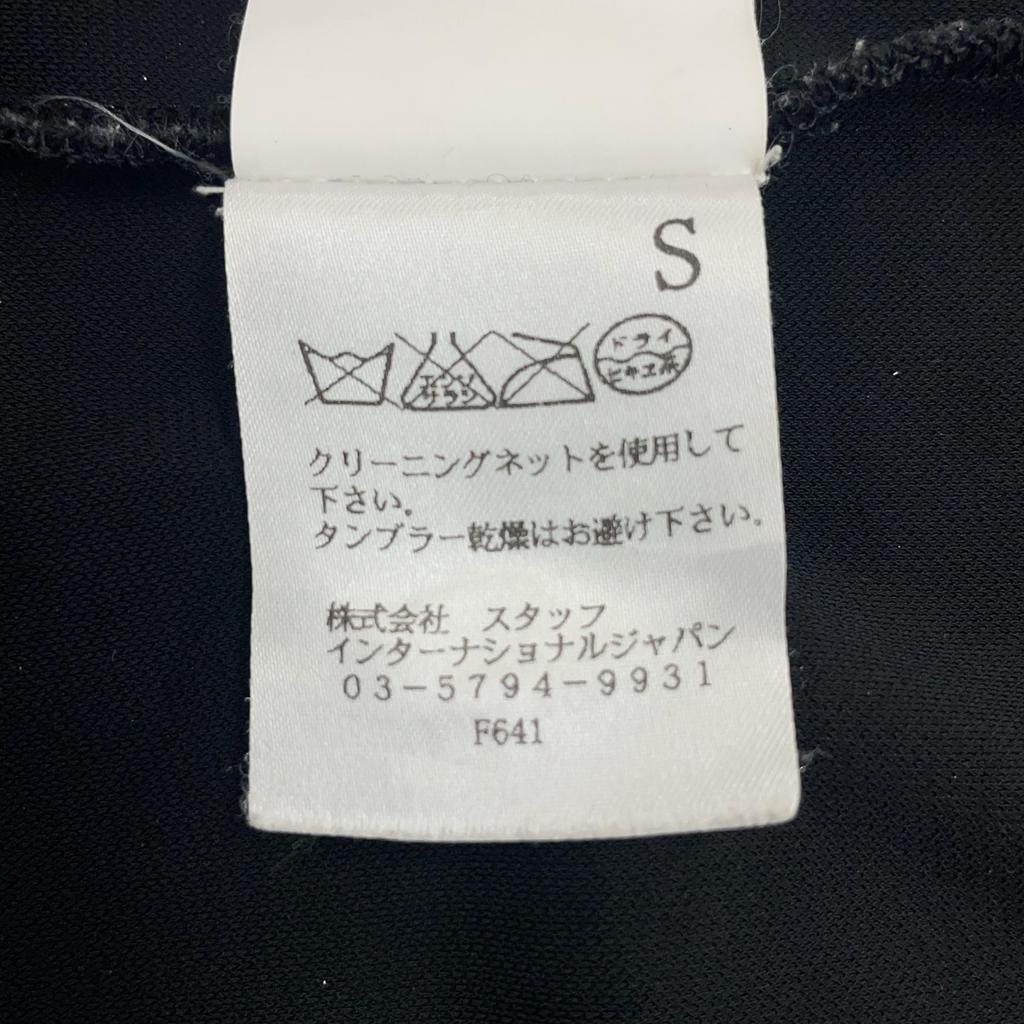 S
エンソ
サラシ
ドライ
セキユ系
クリーニングネットを使用して
下さい。
タンブラー乾燥はお避け下さい。
株式会社 スタッフ
インターナショナルジャパン
03-5794-9931
F641